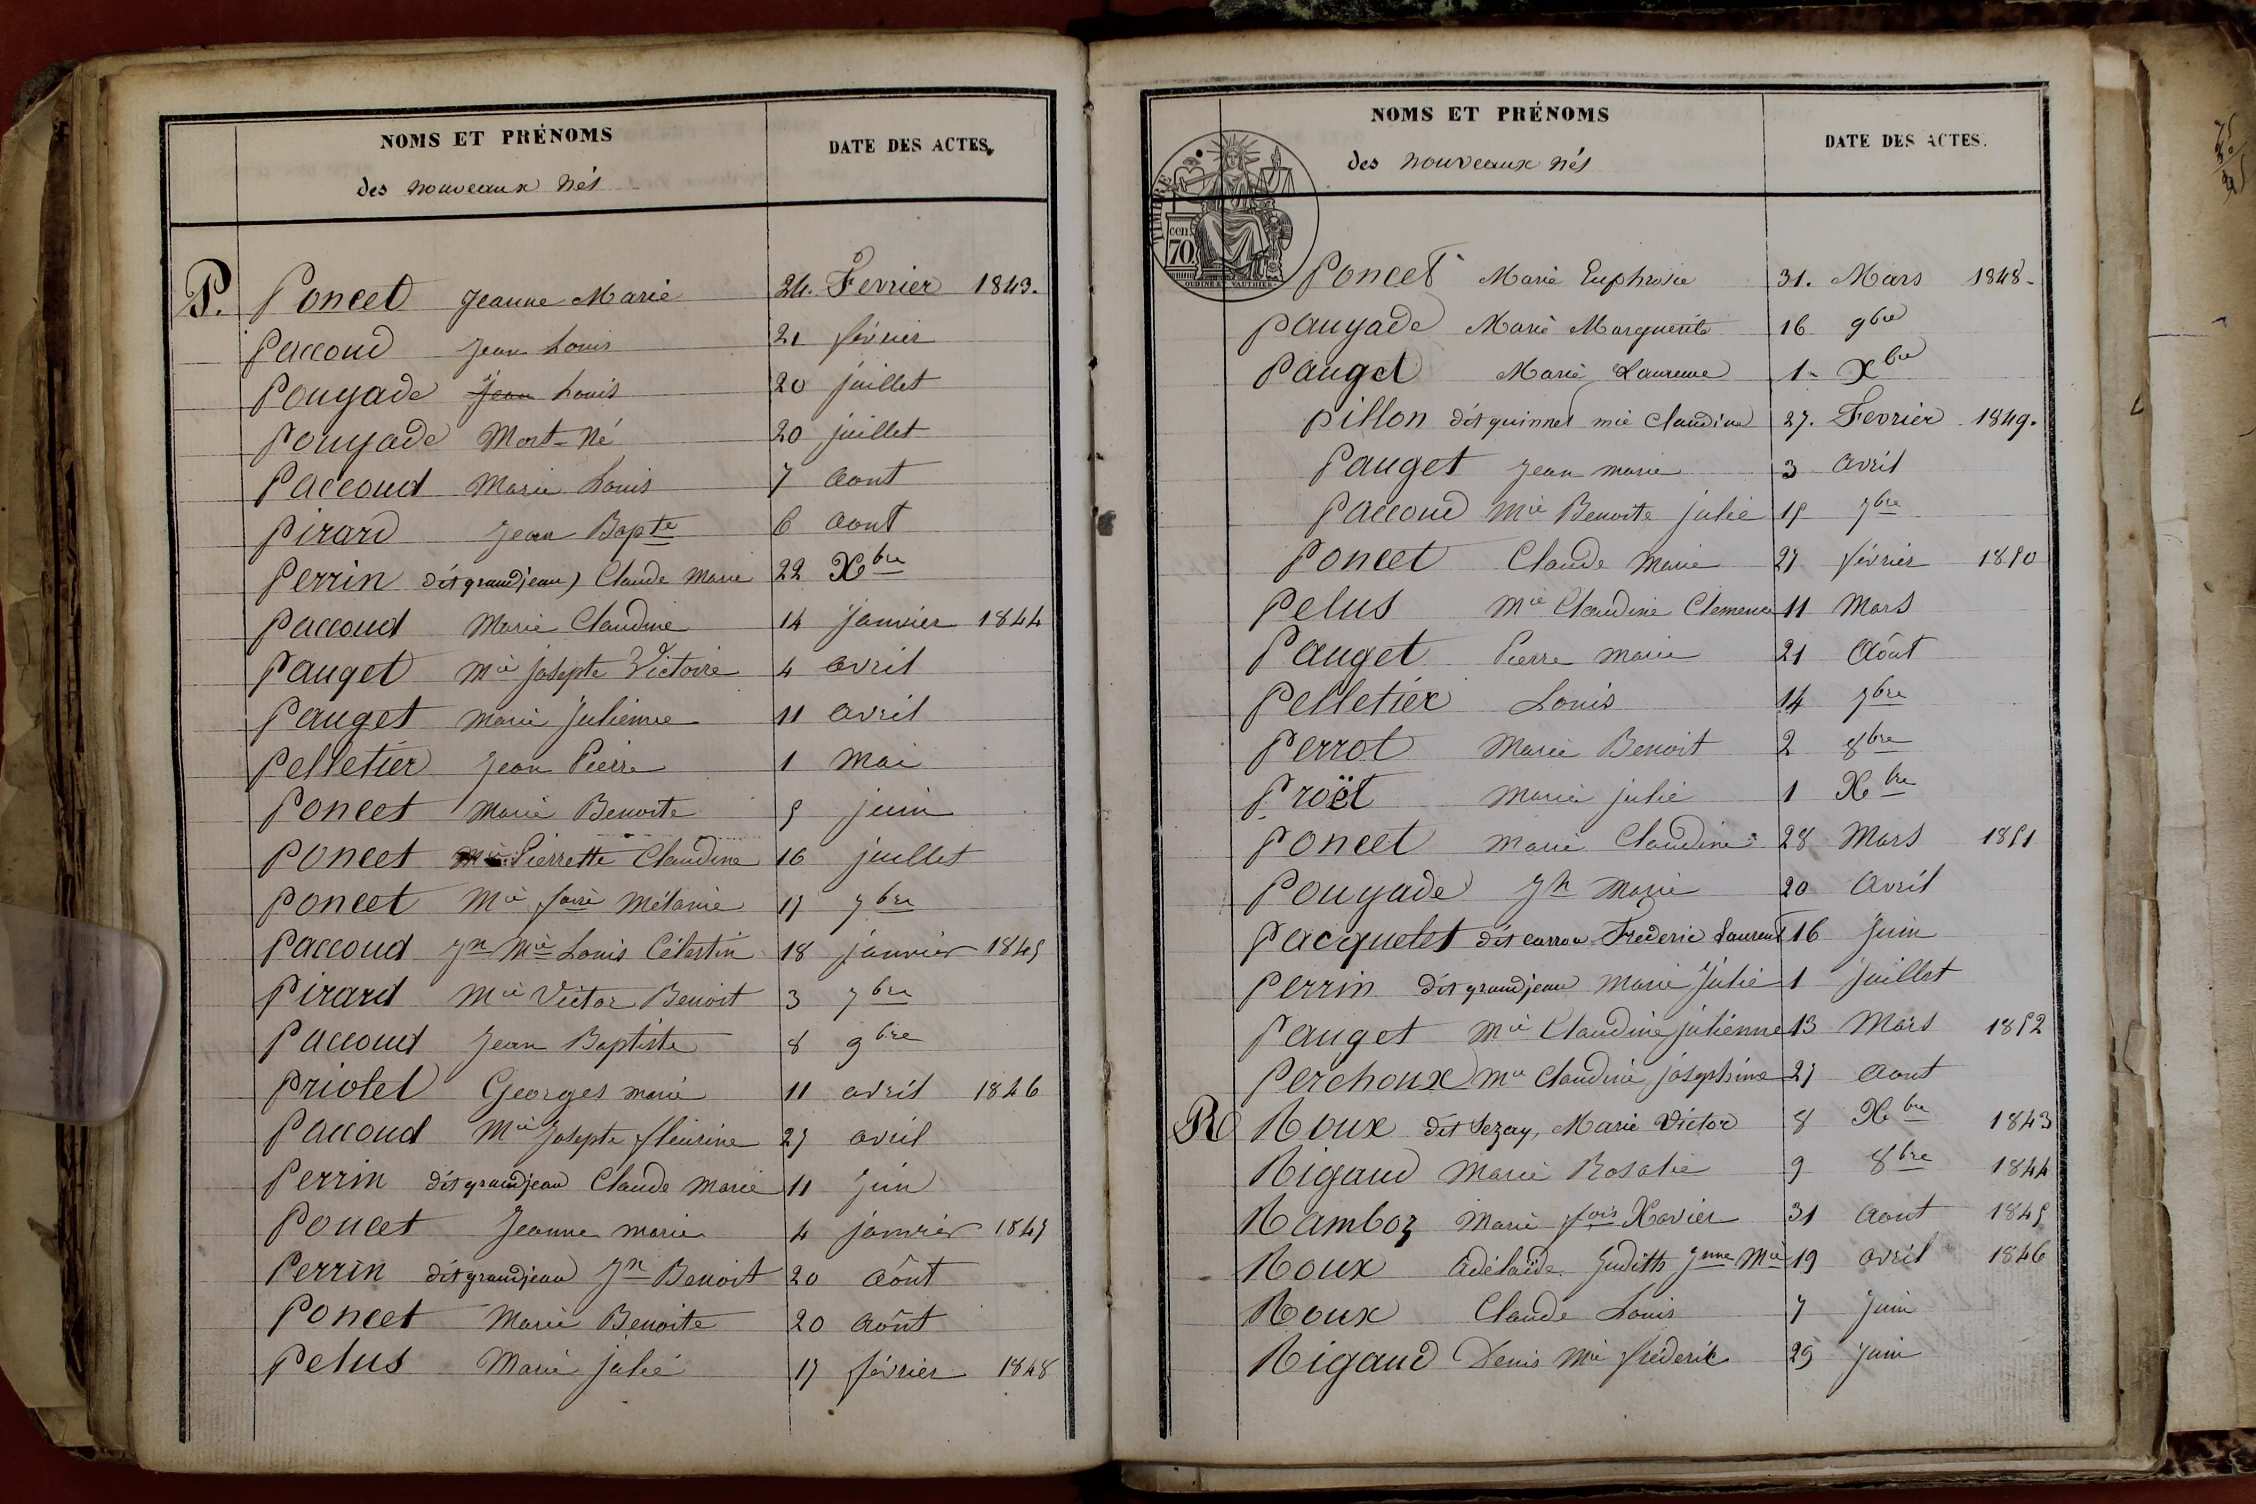 NOMS ET PRÉNOMS
des nouveaux nés
DATE DES ACTES.
P. Poncet Jeanne Marie 24. Fevrier 1843.
Paccoud Jean Louis 21 février
Pouyade Jean Louis 20 juillet
Pouyade Mort-Né 20 juillet
Paccoud Marie Louis 7 aout
Pirard Jean Bapte 6 aout
Perrin dit grandjean) Claude Marie 22 Xbre
Paccoud Marie Claudine 14 janvier 1844
Pauget Mie josepte Victoire 4 avril
Pauget Marie Julienne 11 avril
Pelletier Jean Pierre 1 mai
Poncet Marie Benoite 5 juin
Poncet Mie Pierrette Claudine 16 juillet
Poncet Mie foise Mélanie 17 7bre
Paccoud Jn Mie Louis Célestin 18 janvier 1845
Pirard Mie Victor Benoit 3 7bre
Paccoud Jean Baptiste 8 9bre
Priolet Georges marie 11 avril 1846
Paccoud Mie Josepte fleurine 27 avril
Perrin dit grandjean Claude Marie 11 juin
Poncet Jeanne marie 4 janvier 1847
Perrin dit grandjean Jn Benoit 20 aôut
Poncet Marie Benoite 20 aôut
Pelus Marie julie 17 février 1848
NOMS ET PRÉNOMS
des nouveaux nés
DATE DES ACTES.
TIMBRE
70 cen.
OUDINÉ ET VAUTHIER
Poncet Marie Euphrosie 31. Mars 1848.
Pauyade Marie Marguerite 16 9bre
Pauget Marie Laurence 1. Xbre
Pillon dit quinnet mie Claudine 27. Fevrier 1849.
Pauget Jean marie 3 avril
Paccoud Mie Benoite julie 15 7bre
Poncet Claude Marie 27 février 1850
Pelus Mie Claudine Clemence 11 Mars
Pauget Pierre marie 21 Aôut
Pelletier Louis 14 7bre
Perrot Marie Benoit 2 8bre
Proët Marie julie 1 Xbre
Poncet Marie Claudine 28 Mars 1851
Pouyade Jh Marie 20 Avril
Pacquelet dit carron Frederic Laurent 16 Juin
Perrin dit grandjean Marie Julie 1 juillet
Pauget Mie Claudine julienne 13 Mars 1852
Perchoux Mie Claudine joséphine 27 Aout
R Roux dit Sezay, Marie Victor 8 Xbre 1843
Rigaud Marie Rosalie 9 8bre 1844
Ramboz Marie fois Xavier 31 Aout 1845
Roux Adélaïde Judith Jnne Mie 19 avril 1846
Roux Claude Louis 7 Juin
Rigaud Denis Mie frédéric 25 Juin